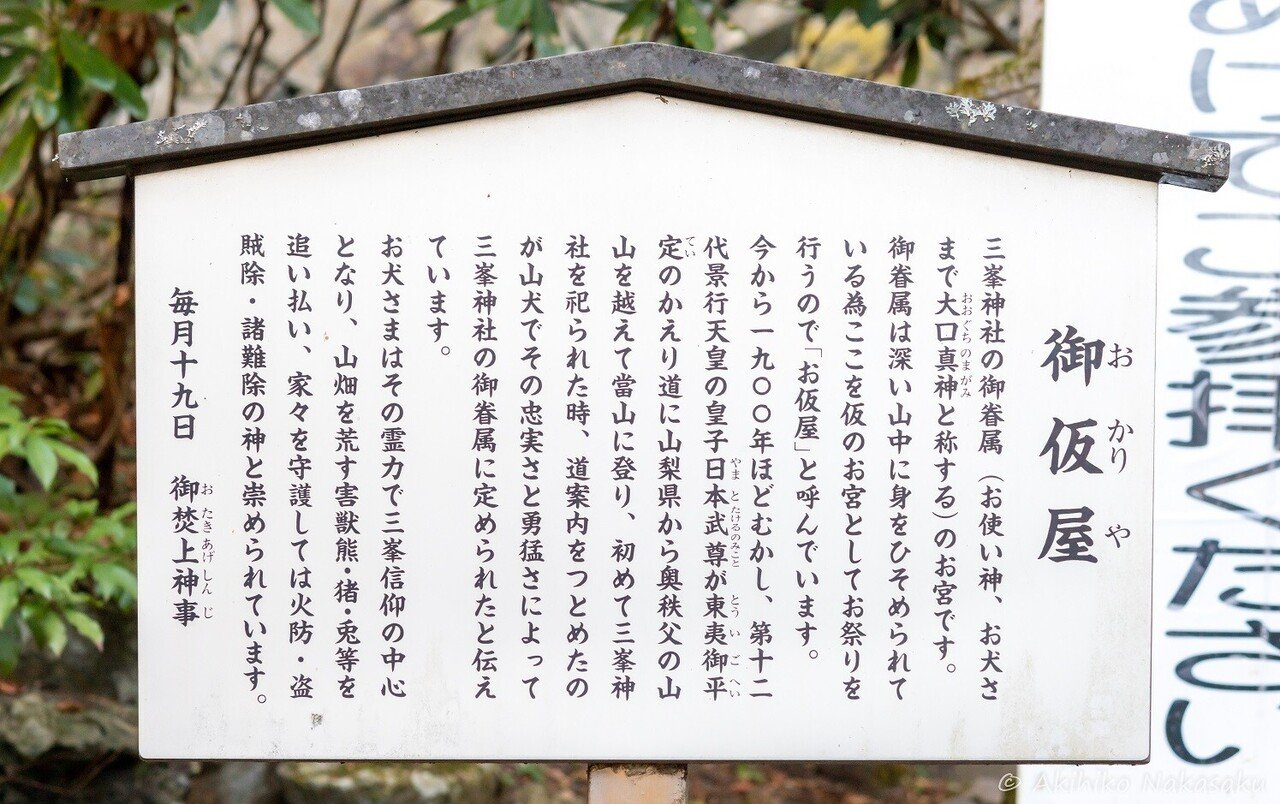 御仮屋
おかりや
三峯神社の御眷属（お使い神、お犬さ
まで大口真神と称する）のお宮です。
おおぐちのまがみ
御眷属は深い山中に身をひそめられて
いる為ここを仮のお宮としてお祭りを
行うので「お仮屋」と呼んでいます。
今から一九〇〇年ほどむかし、第十二
代景行天皇の皇子日本武尊が東夷御平
やまとたけるのみこと
とういごへい
定のかえり道に山梨県から奥秩父の山
てい
山を越えて當山に登り、初めて三峯神
社を祀られた時、道案内をつとめたの
が山犬でその忠実さと勇猛さによって
三峯神社の御眷属に定められたと伝え
ています。
お犬さまはその霊力で三峯信仰の中心
となり、山畑を荒す害獣熊・猪・兎等を
追い払い、家々を守護しては火防・盗
賊除・諸難除の神と崇められています。
毎月十九日　御焚上神事
おたきあげしんじ
© Akihiko Nakasaku